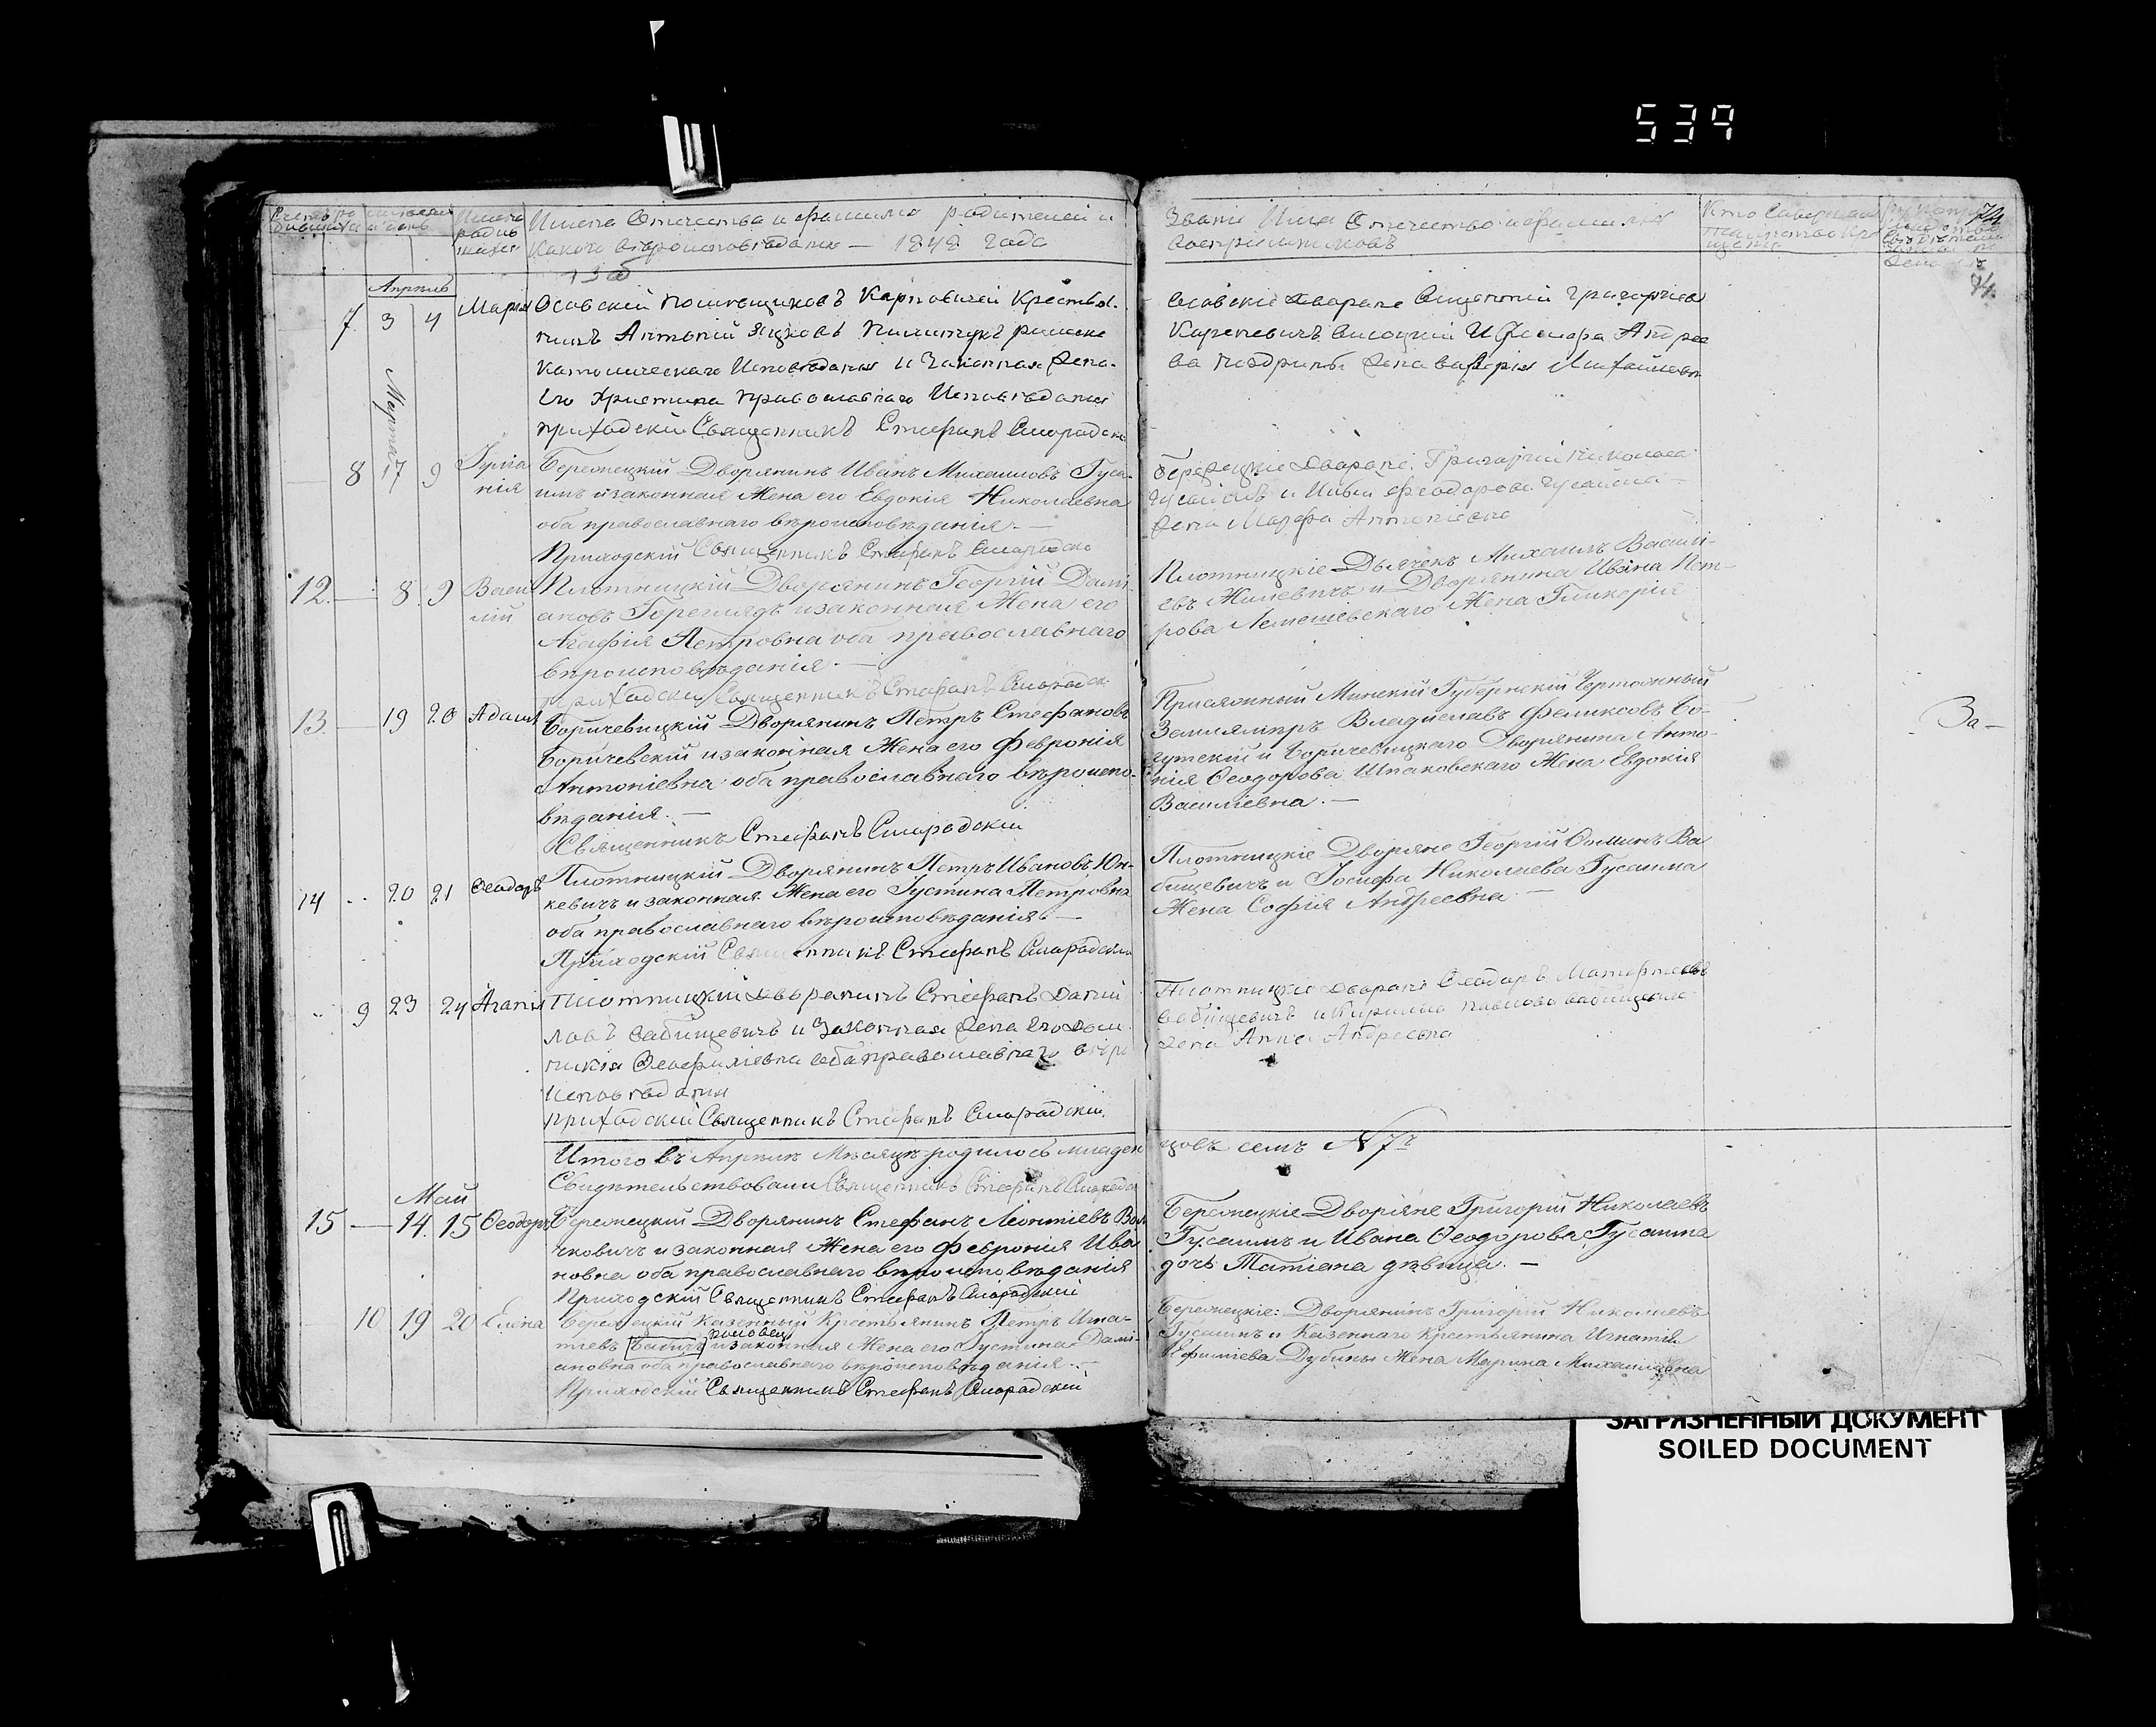 539
Имена Отечества и фамилия родителей и
какого вѣроисповѣдания — 1842 года
Званіе Имя Отечество и фамилия
воспріемниковъ
Кто совершал
таинство кре
щения
74
Апрель
7 3 4 Марія Осовскій помѣщиковъ Карповичей Крестья-
нинъ Антоній римско
католическаго Исповѣдания и Законная Жена
его Христина православнаго Исповѣдания
приходскій Священникъ Стефанъ Смородскій
Осовскіе дворяне Викентій Григорьев
Марта
8 17 9 Іуліа
нія
Бережецкій Дворянинъ Иванъ Михаиловъ Гуса-
имъ и законная Жена его Евдокія Николаевна
оба православнаго вѣроисповѣданія. —
Приходскій Священникъ Стефанъ Смородскій
дворяне Григорій Николаев
Феодорова Гусаима
Жена Марфа Антоніевна
12. — 8. 9 Васи
лій
Плотницкій Дворянинъ Георгій Дамі-
ановъ Герегиядъ и законная Жена его
Агафія Петровна оба православнаго
вѣроисповѣданія. —
Приходскій Священникъ Стефанъ Смородскій
Плотницкіе Дьячекъ Михаилъ Васили-
евъ Жилевичъ и Дворянина Ивана Пет-
рова Лемешевскаго Жена Гликерія
13. — 19 20 Адамъ Боричевицкій Дворянинъ Петръ Стефановъ
Боричевскій и законная Жена его Февронія
Антоніевна оба православнаго вѣроиспо-
вѣданія. —
Священникъ Стефанъ Смородскій
Присяжный Минскій Губернскій Чертожный
Землемѣръ Владиславъ Феликсовъ Бо-
гутскій и Боричевицкаго Дворянина Анто-
нія Ѳеодорова Шпаковскаго Жена Евдокія
Василіевна. —
За-
14 20 21 Ѳеодоръ Плотницкій Дворянинъ Петръ Ивановъ Юн-
кевичъ и законная Жена его Іустина Петровна
оба православнаго вѣроисповѣданія —
Приходскій Священникъ Стефанъ Смородскій
Плотницкіе Дворяне Георгій Ѳоминъ Ба
бищевичъ и Іосифа Николаева Гусаима
Жена Софія Андреевна —
9 23 24 Агапія Плотницкій дворянинъ Стефанъ Дании
ловъ Бабищевичъ и Законная Жена его Дом
никія Ѳеофиліевна оба православнаго вѣро
исповѣдания
приходскій Священникъ Стефанъ Смородскій.
Плотницкіе дворяне Ѳеодоръ Матфеевъ
Бабищевичъ и Кирилла Павлова Бабищевича
Жена Анна Андреевна
Итого въ Апрѣлѣ Мѣсяцѣ родилось младен
цовъ семь N 7ъ
Свидѣтельствовали Священникъ Стефанъ Смородскій
Май
15 — 14. 15 Ѳеодоръ Бережецкій Дворянинъ Стефанъ Леонтіевъ Вол
чковичъ и законная Жена его Февронія Ива
новна оба православнаго вѣроисповѣданія
Приходскій Священникъ Стефанъ Смородскій
Бережецкіе Дворяне Григорій Николаевъ
Гусаимъ и Ивана Ѳеодорова Гусаима
дочь Татіана дѣвица. —
10 19 20 Елена Бережецкій Казенный Крестьянинъ Петръ Игна-
тіевъ и законная Жена его Іустина Дамі-
ановна оба православнаго вѣроисповѣданія. —
Приходскій Священникъ Стефанъ Смородскій
Бережецкіе: Дворянинъ Григорій Николаевъ
Гусаимъ и Казеннаго Крестьянина Игнатія
Ефиміева Дубины Жена Марина Михаиловна
ЗАГРЯЗНЕННЫЙ ДОКУМЕНТ
SOILED DOCUMENT